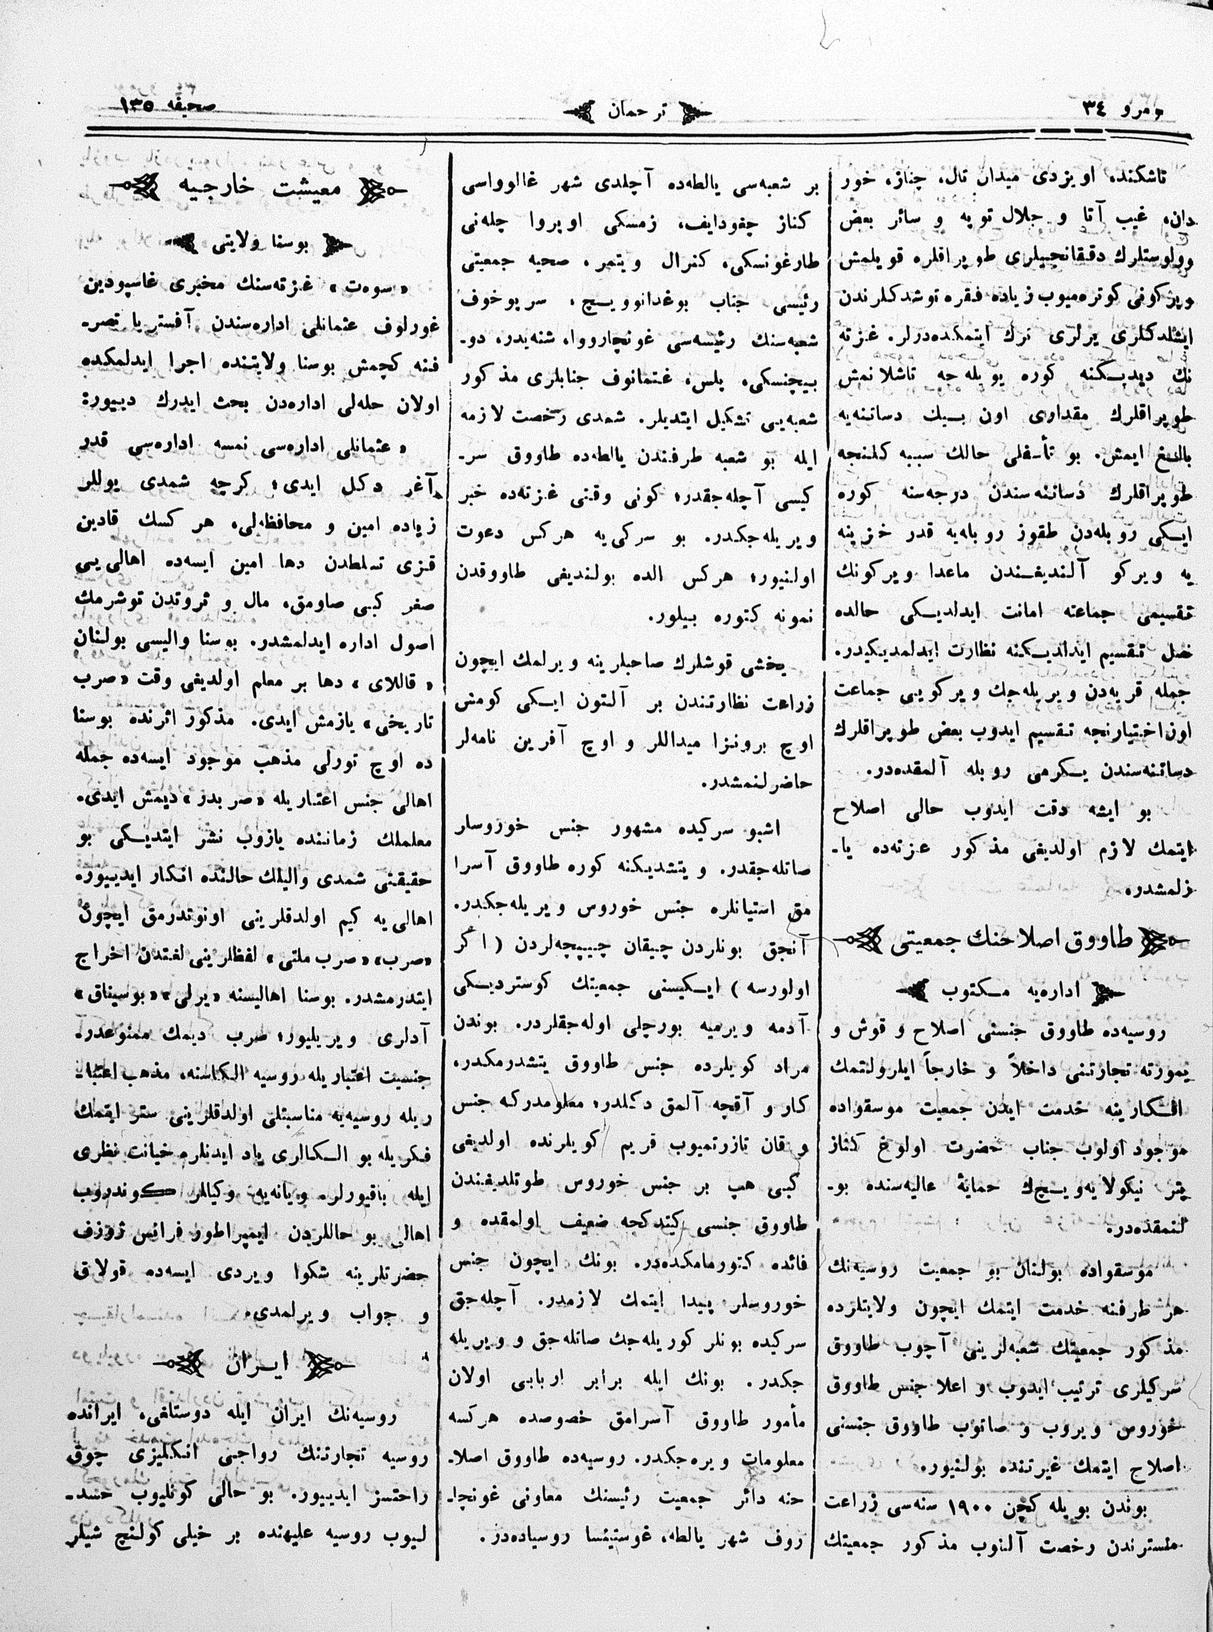 نومرو ٣٤
ترجمان
صحیفه ١٣٥
تاشكنده اویزدی میدان تال، چناز، خور
دان، غیب آتا و جلال توپه و سائر بعض
وولوستلرك دقیقانچیلری طوپراقلره قویلمش
ویركونی كوتره‌میوب زیاده فقره توشدكلرندن
ایشلدكلری یرلری ترك ایتمكده‌درلر. غزته
نك دیدیـكنه كوره بویله‌جه تاشلانمش
طوپراقلرك مقداری اون بـیك دساتنه‌یه
بالـغ ایمش. بو تأسفلی حالك سببه كلنجه
طوپراقلرك دساتنه‌سندن درجه‌سنه كوره
ایـكی روبله‌دن طقوز روبله‌یه قدر خزینه
یه ویركو آلندیغـندن ماعدا ویركونك
تقسیمی جماعته امانت ایدلدیـكی حالده
نصل تقسیم ایدلدیـكنه نظارت ایدلمدیكیدر.
جمله قریه‌دن ویریله‌جك ویركویی جماعت
اوز اختیارنجه تقسیم ایدوب بعض طوپراقلرك
دساتنه‌سندن یـكرمی روبله آلمقده‌در.
بو ایشه دقت ایدوب حالی اصلاح
ایتمك لازم اولدیغی مذكور غزته‌ده یا۔
زلمشدر.
طاووق اصلاحنك جمعیتی
اداره‌یه مـكتوب
روسیه‌ده طاووق جنسنی اصلاح و قوش و
یمورته تجارتنی داخلاً و خارجاً ایلرولتمك
افـكارینه خدمت ایدن جمعیت موسقواده
موجود اولوب جناب حضرت اولوغ كناز
پتر نیكولایه‌ویـچ‌ك حمایهٔ عالیه‌سنده بو۔
لنمقده‌در.
موسقواده بولنان بو جمعیت روسیه‌نك
هر طرفنه خدمت ایتمك ایچون ولایتلرده
مذكور جمعیتك شعبه‌لرینی آچوب طاووق
سركیلری ترتیب ایدوب و اعلا جنس طاووق
خوروس ویروب و صاتوب طاووق جنسنی
اصلاح ایتمك غیرتنده بولنیور.
بوندن بویله كچن ١٩٠٠ سنه‌سی زراعت
منسترندن رخصت آلنوب مذكور جمعیتك
بر شعبه‌سی یالطه‌ده آچلدی شهر غالوواسی
كناز چغودایف، زمسكی اوپروا چله‌نی
طارغونسكی، كنرال ویتمر، صحیه جمعیتی
رئیسی جناب بوغدانوویـچ، سرپوخوف
شعبه‌سنك رئیسه‌سی غونچاروواه شنه‌یدر، دو۔
بیچنسكی، یلس، غتمانوف جنابلری مذكور
شعبه‌یی تشكیل ایتدیلر. شمدی رخصت لازمه
ایله بو شعبه طرفندن یالطه‌ده طاووق سر۔
كیسی آچله‌جقدر؛ كونی وقتی غزته‌ده خبر
ویریله‌جكدر. بو سركی‌یه هركس دعوت
اولنیور؛ هركس الده بولندیغی طاووقدن
نمونه كتوره بیلور.
یخشی قوشلرك صاحبلرینه ویرلمك ایچون
زراعت نظارتندن بر آلتون ایـكی كومش
اوچ برونزا میداللر و اوچ آفرین نامه‌لر
حاضرلنمشدر.
اشبو سركیده مشهور جنس خوروسلر
صاتله‌جقدر. ویتشدیكنه كوره طاووق آسرا
مق استیانلره جنس خوروس ویریله‌جكدر.
آنجق بونلردن چیقان چیپچه‌لردن ( اگر
اولورسه ) ایـكیسنی جمعیتك كوستردیـكی
آدمه ویرمیه بورچلی اوله‌جقلردر. بوندن
مراد كویلرده جنس طاووق یتشدرمكدر.
كار و آقچه آلمق دكلدر؛ معلومدركه جنس
و قان تازرتمیوب قریم كویلرنده اولدیغی
كبی هپ بر جنس خوروس طوتلدیغندن
طاووق جنسی كیتدكجه ضعیف اولمقده و
فائده كتورمامكده‌در. بونك ایچون جنس
خوروسلر پیدا ایتمك لازمدر. آچله‌جق
سركیده بونلر كوریله‌جك صاتله‌جق و ویریله
جكدر. بونك ایله برابر اربابی اولان
مأمور طاووق آسرامق خصوصده هركسه
معلومات ویره‌جكدر. روسیه‌ده طاووق اصلا۔
حنه دائر جمعیت رئیسنك معاونی غونچا۔
روف شهر یالطه، غوستینتسا روسیاده‌در.
معیشت خارجیه
بوسنا ولایتی
«سوه‌ت» غزته‌سنك مخبری غاسپودین
غورلوف عثمانلی اداره‌سندن آفستریا تصر۔
فنه كچمش بوسنا ولایتنده اجرا ایدلمكده
اولان حله‌لی اداره‌دن بحث ایدرك دییور:
«عثمانلی اداره‌سی نمسه اداره‌سی قدر
آغر دكل ایدی؛ كرچه شمدی یوللر
زیاده امین و محافظه‌لی، هركسك قادین
قـزی تسلطدن دها امین ایسه‌ده اهالی‌یی
صغر كبی صاومق، مال و ثروتدن توشرمك
اصول اداره ایدلمشدر. بوسنا والیسی بولنان
«قاللای» دها بر معلم اولدیغی وقت «صرب
تاریخی» یازمش ایدی. مذكور اثرنده بوسنا
ده اوچ تورلی مذهب موجود ایسه‌ده جمله
اهالی جنس اعتباریله «صربدر» دیمش ایدی.
معلملك زماننده یازوب نشر ایتدیـكی بو
حقیقتی شمدی والیلك حالنده انـكار ایدییور.
اهالی‌یه كیم اولدقلرینی اونوتدرمق ایچون
«صرب» «صرب ملتی» لفظلرینی لغتدن اخراج
ایتدرمشدر. بوسنا اهالیسنه «یرلی» «بوسیناق»
آدلری ویریلیور؛ صرب دیمك ممنوعدر.
جنسیت اعتباریله روسیه الكاسنه، مذهب اعتبا۔
ریله روسیه‌یه مناسبتلی اولدقلرینی ستر ایتمك
فـكریله بو الـكالری یاد ایدنلره خیانت نظری
ایله باقیورلر. ویانه‌یه وكیللر كوندروب
اهالی بو حاللردن ایمپراطور فرانس ژوزف
حضرتلرینه شكوا ویردی ایسه‌ده قولاق
و جواب ویرلمدی.
ایـران
روسیه‌نك ایران ایله دوستلغی، ایرانده
روسیه تجارتنك رواجی انـكلیزی چوق
راحتسز ایدییور. بو حالی كونلیوب حسد۔
لیوب روسیه علیهنده بر خیلی كولنج شیلر